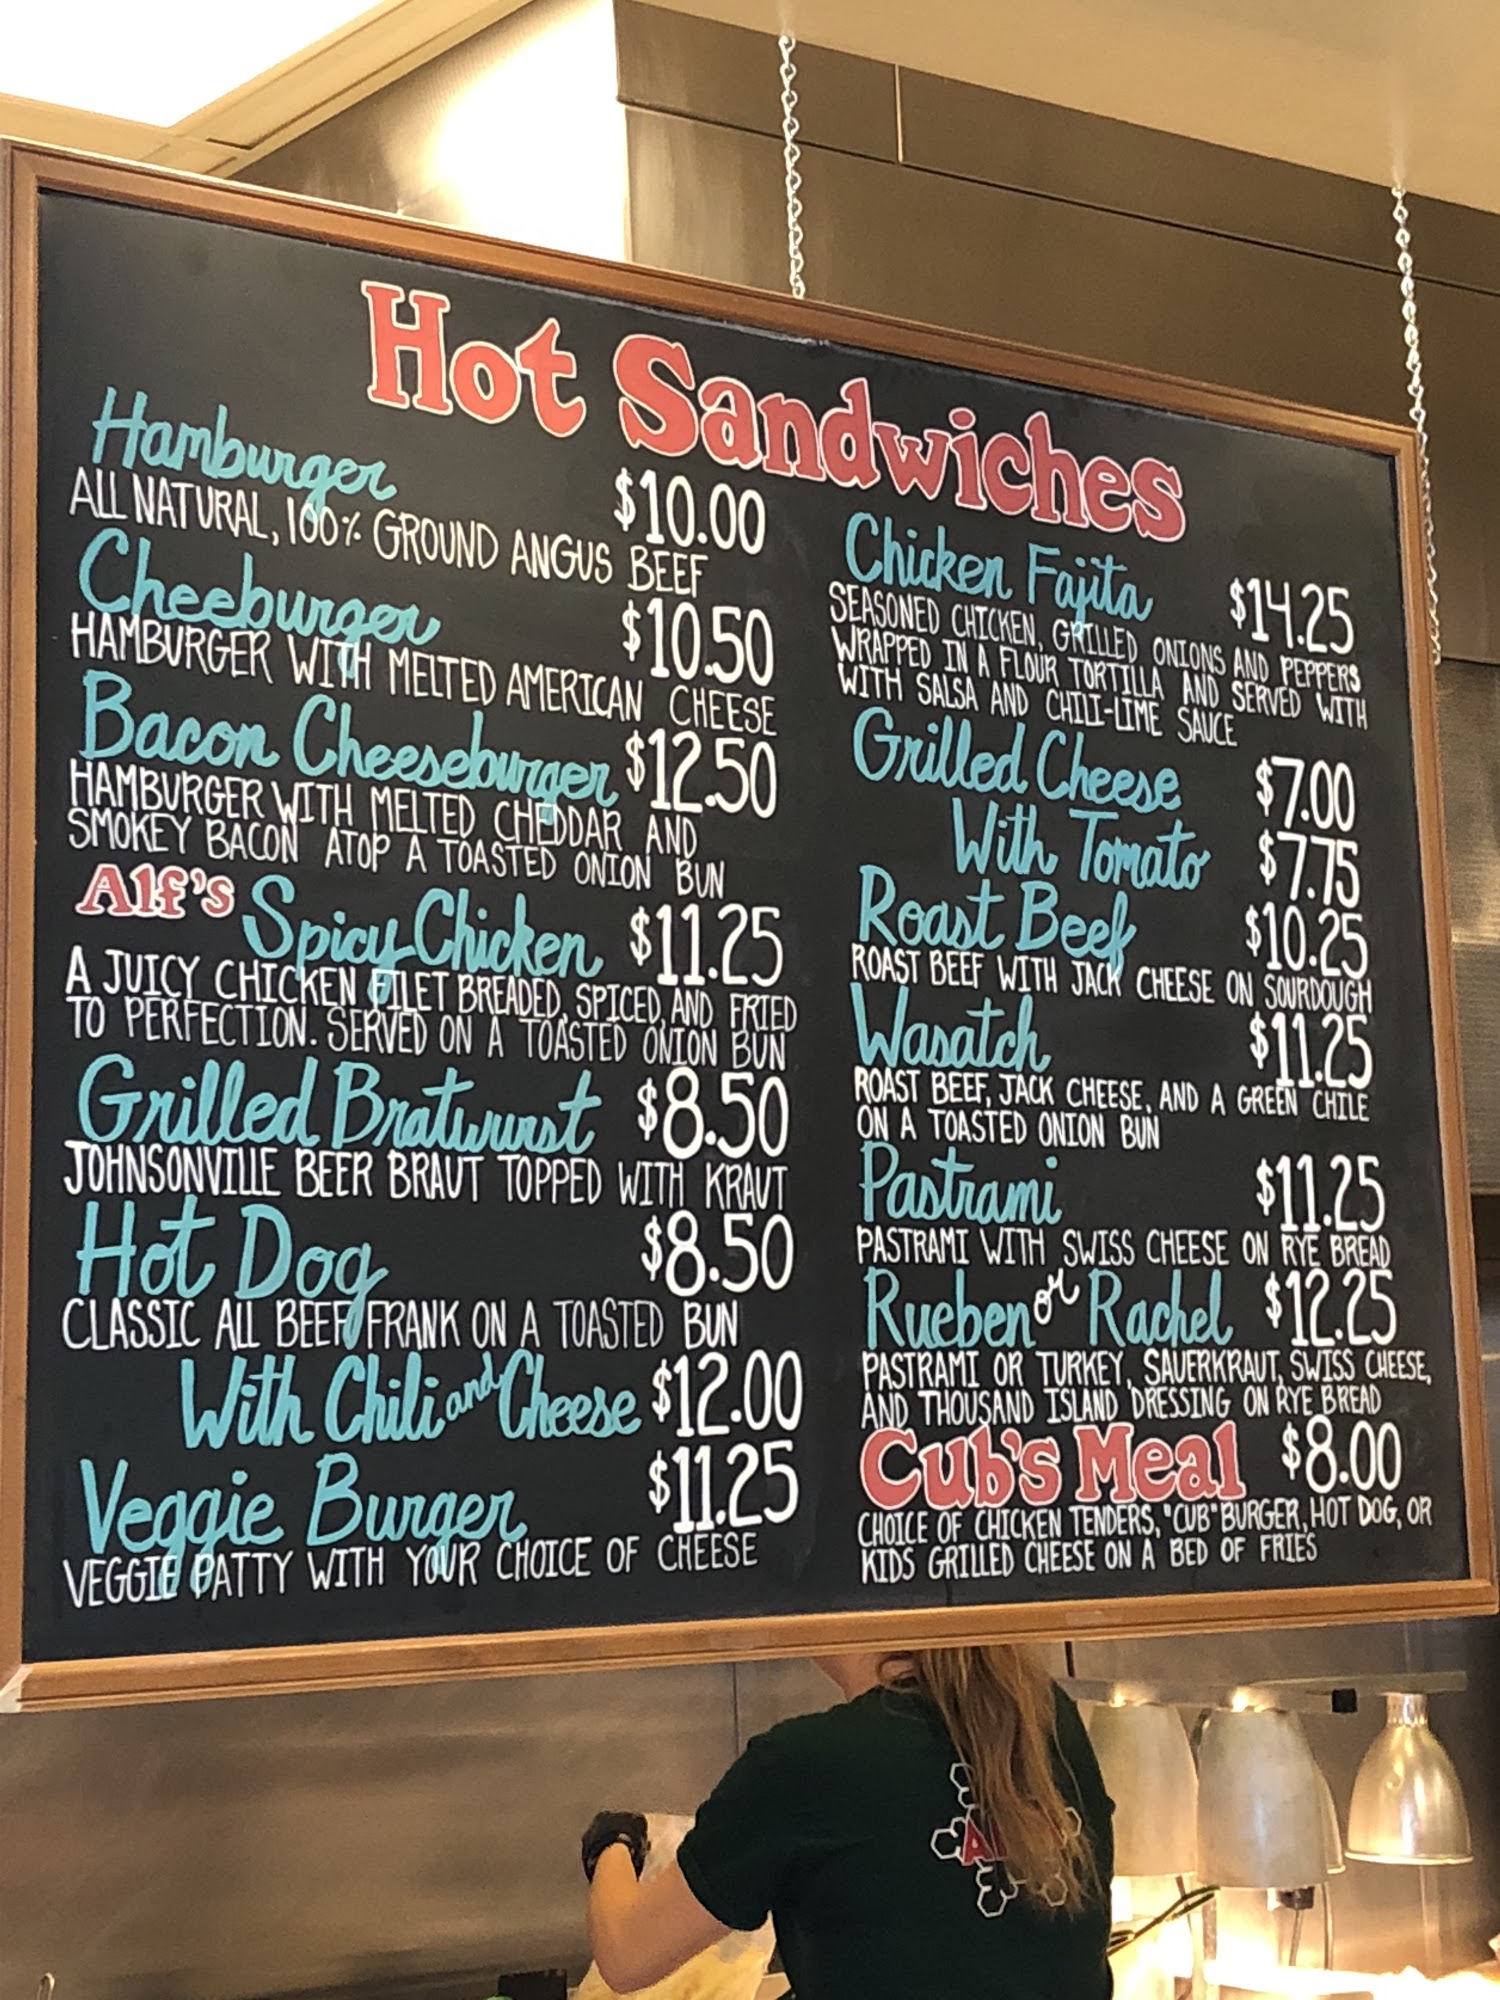 Hot Sandwiches
Hamburger $10.00
ALL NATURAL, 100% GROUND ANGUS BEEF
Cheeburger $10.50
HAMBURGER WITH MELTED AMERICAN CHEESE
Bacon Cheeseburger $12.50
HAMBURGER WITH MELTED CHEDDAR AND
SMOKEY BACON ATOP A TOASTED ONION BUN
Alf's Spicy Chicken $11.25
A JUICY CHICKEN FILET BREADED, SPICED, AND FRIED
TO PERFECTION. SERVED ON A TOASTED ONION BUN
Grilled Bratwurst $8.50
JOHNSONVILLE BEER BRAUT TOPPED WITH KRAUT
Hot Dog $8.50
CLASSIC ALL BEEF FRANK ON A TOASTED BUN
With Chili and Cheese $12.00
Veggie Burger $11.25
VEGGIE PATTY WITH YOUR CHOICE OF CHEESE
Chicken Fajita $14.25
SEASONED CHICKEN, GRILLED ONIONS AND PEPPERS
WRAPPED IN A FLOUR TORTILLA AND SERVED WITH
WITH SALSA AND CHILI-LIME SAUCE
Grilled Cheese $7.00
With Tomato $7.75
Roast Beef $10.25
ROAST BEEF WITH JACK CHEESE ON SOURDOUGH
Wasatch $11.25
ROAST BEEF, JACK CHEESE, AND A GREEN CHILE
ON A TOASTED ONION BUN
Pastrami $11.25
PASTRAMI WITH SWISS CHEESE ON RYE BREAD
Rueben or Rachel $12.25
PASTRAMI OR TURKEY, SAUERKRAUT, SWISS CHEESE,
AND THOUSAND ISLAND DRESSING ON RYE BREAD
Cub's Meal $8.00
CHOICE OF CHICKEN TENDERS, "CUB" BURGER, HOT DOG, OR
KIDS GRILLED CHEESE ON A BED OF FRIES